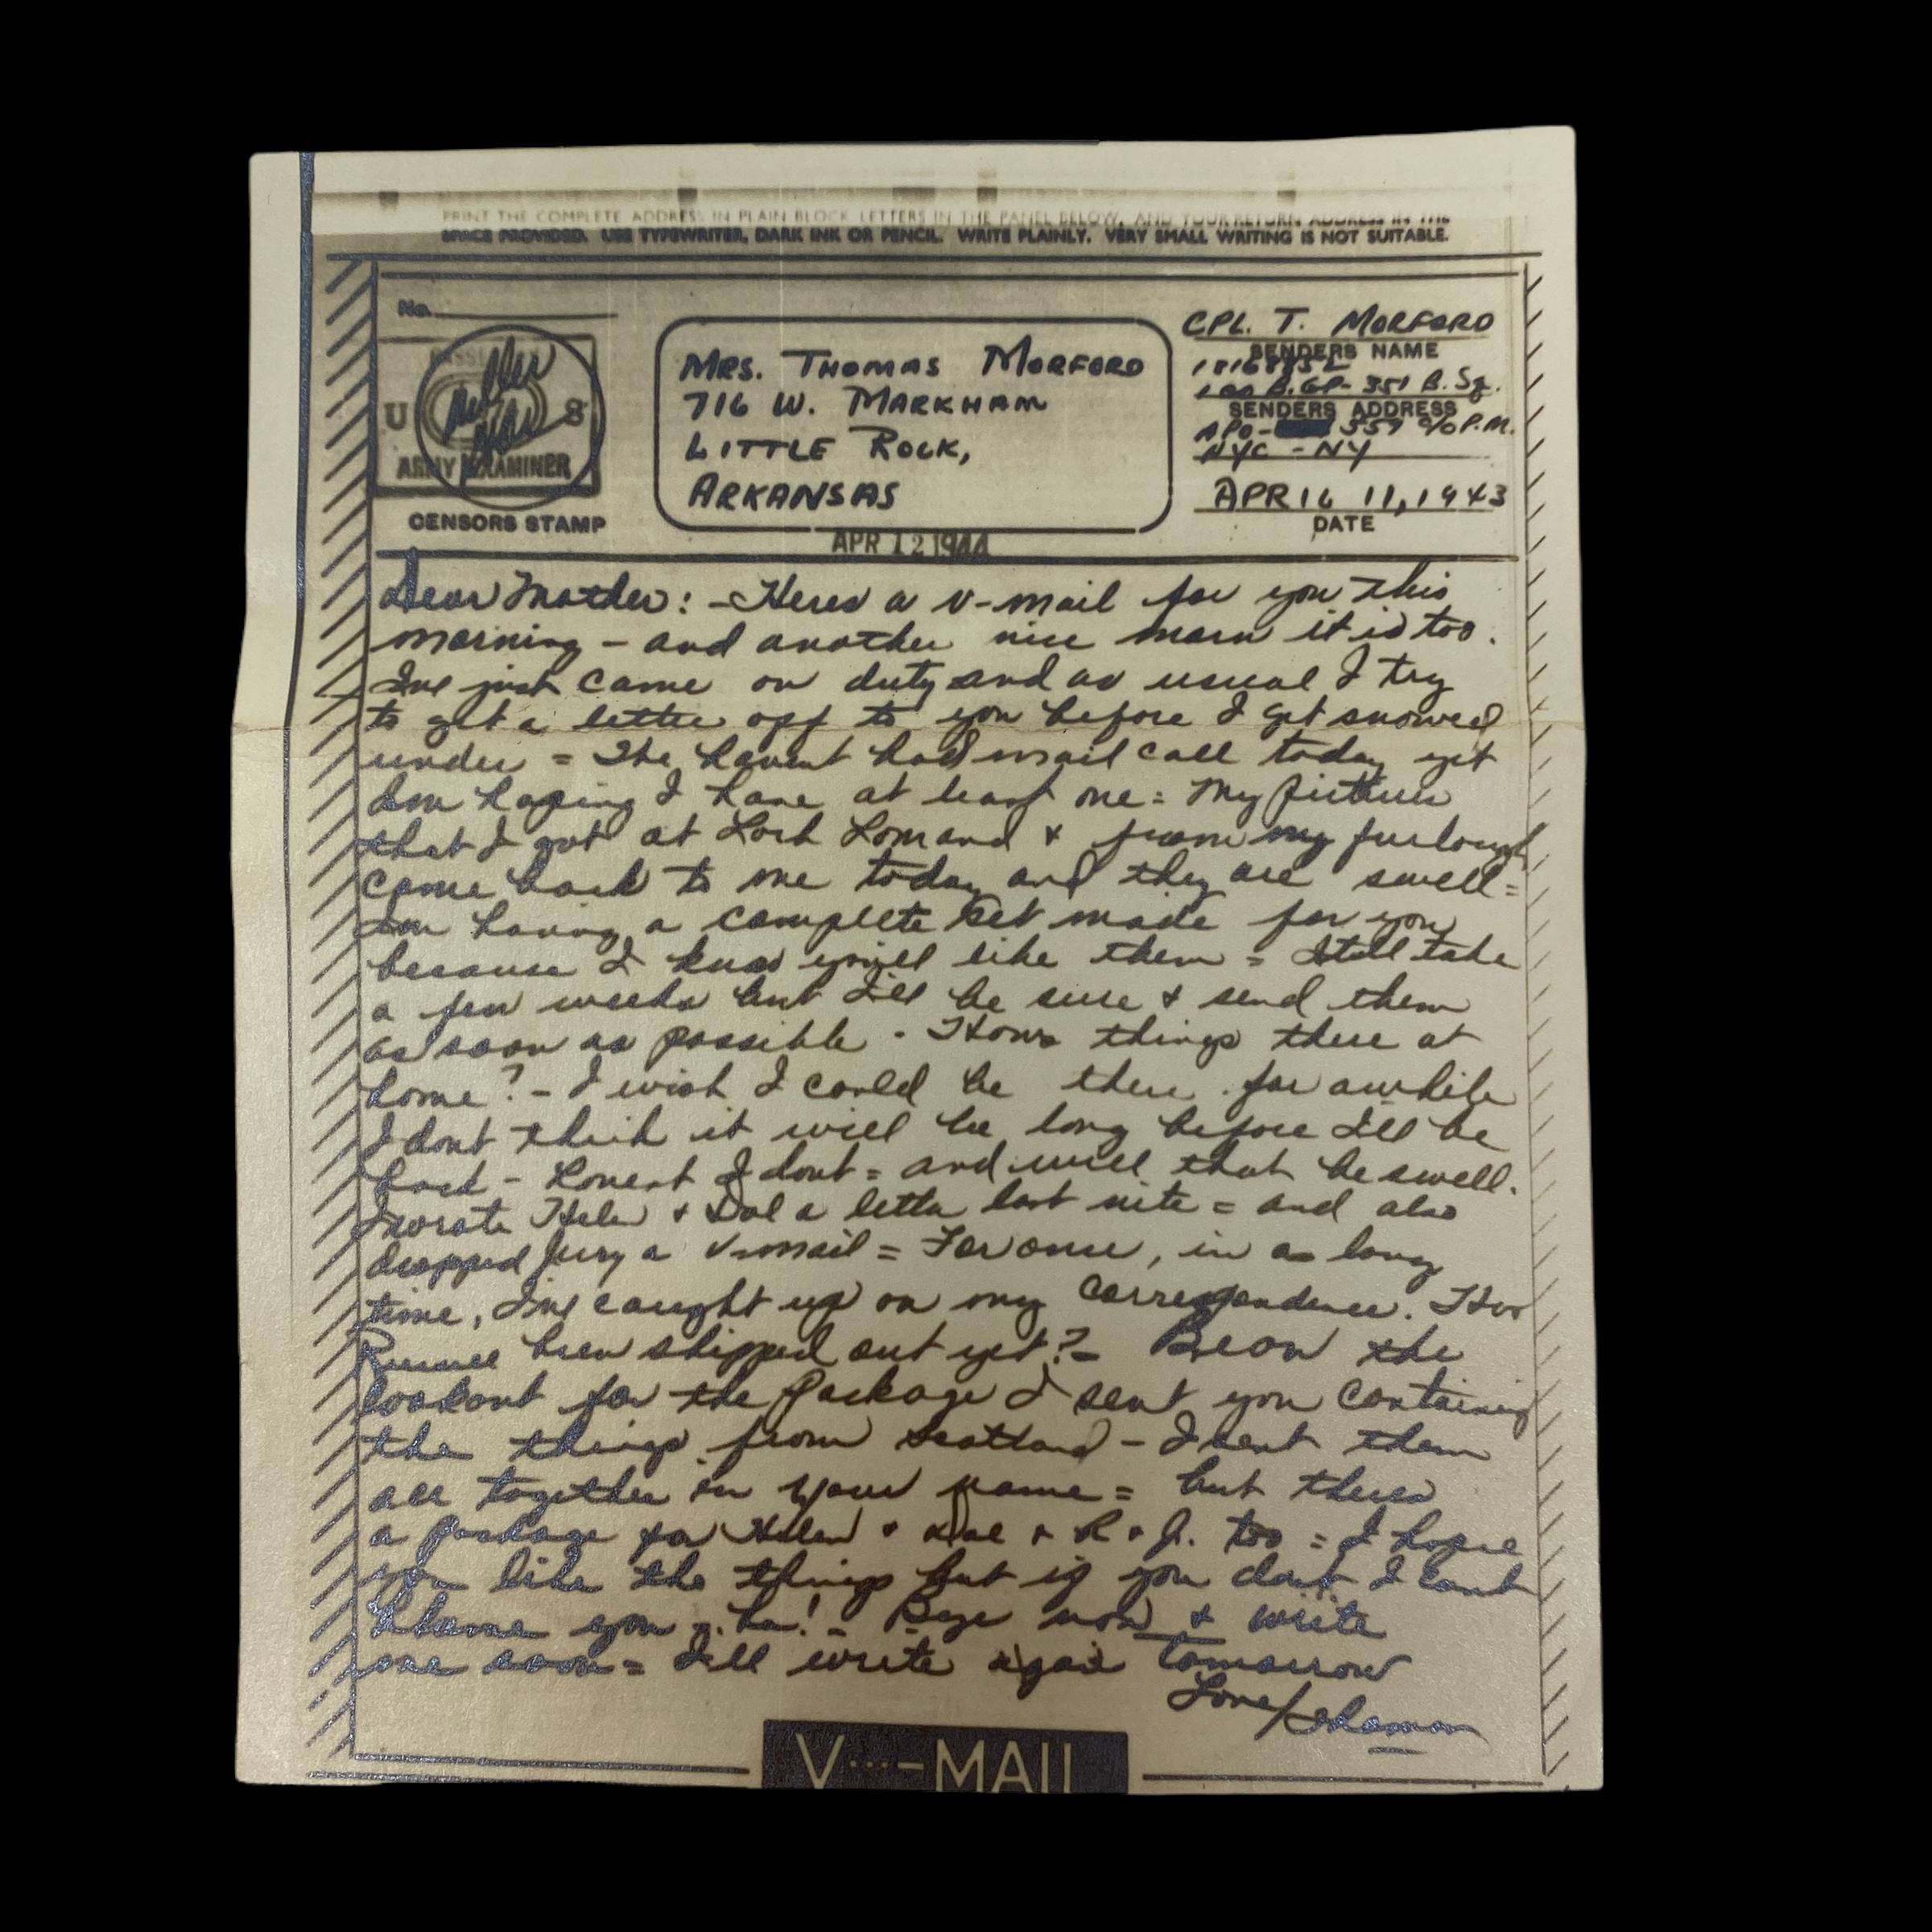 PRINT THE COMPLETE ADDRESS IN PLAIN BLOCK LETTERS IN THE PANEL BELOW, AND YOUR RETURN ADDRESS IN THE
SPACE PROVIDED. USE TYPEWRITER, DARK INK OR PENCIL. WRITE PLAINLY. VERY SMALL WRITING IS NOT SUITABLE.
No.
U S
ARMY EXAMINER
CENSORS STAMP
MRS. THOMAS MORFORD
716 W. MARKHAM
LITTLE ROCK,
ARKANSAS
CPL. T. MORFORD
SENDERS NAME
100 B. GP- 351 B. Sq.
SENDERS ADDRESS
APO- 559 c/o P.M.
NYC - NY
APRIL 11, 1943
DATE
APR 12 1944
Dear Mother: - Heres a V-mail for you this
morning - and another nice morn it is too.
Ive just came on duty and as usual I try
to get a letter off to you before I get snowed
under = havent had mail call today yet
Im hoping I have at least one = My pictures
that I got at Loch Lomand & from my furlough
came back to me today and they are swell =
Im having a complete set made for you
because I know you'll like them = Itll take
a few weeks but I'll be sure & send them
as soon as possible - Hows things there at
home? - I wish I could be there for awhile
I dont think it will be long before I'll be
back - honest I dont = and will that be swell.
I wrote Helen & Dal a letter last nite = and also
dropped Jerry a V-mail = For once, in a long
time, Ive caught up on my correspondence. Has
Russell been shipped out yet? - Be on the
lookout for the package I sent you containing
the things from Scotland - I sent them
all together in your name = but theres
a package for Helen & Dal & R & J. too = I hope
you like the things but if you dont I cant
blame you - ha! - Bye now & write
me soon = I'll write again tomorrow
Love/
V···-MAIL